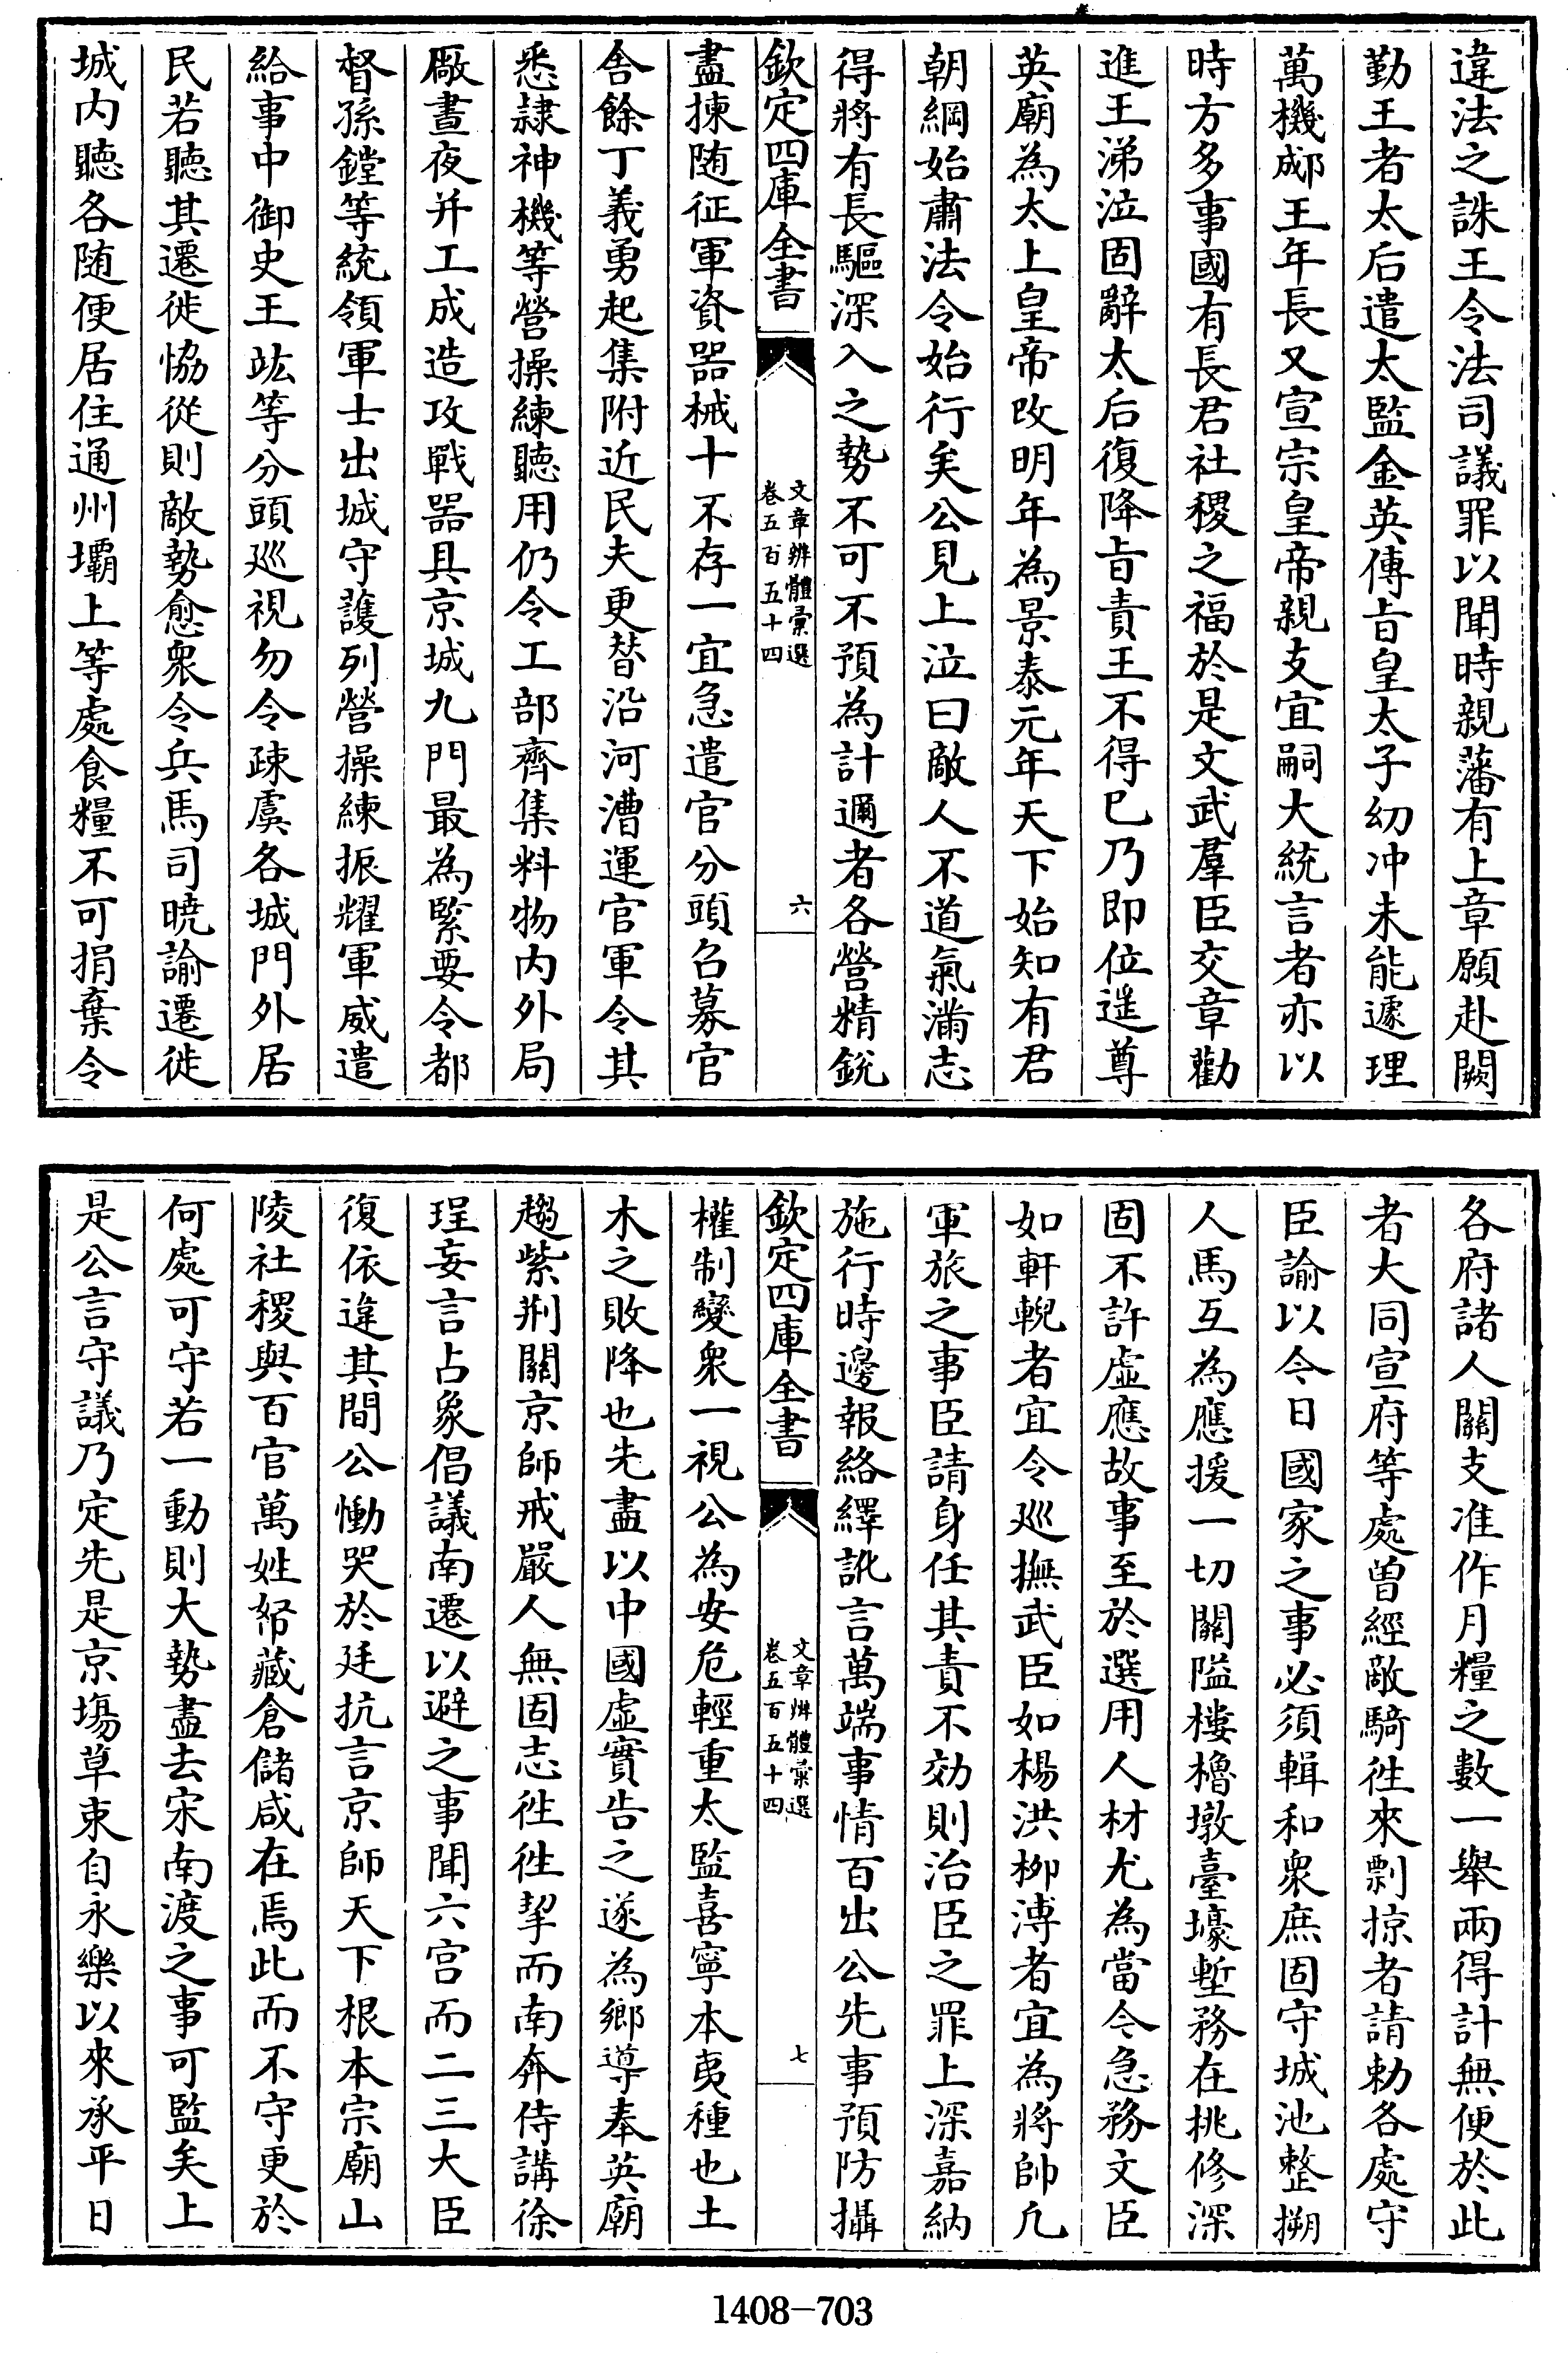 違法之誅王令法司議罪以聞時親藩有上章願赴闕
勤王者太后遣太監金英傳㫖皇太子幼冲未能遽理
萬機郕王年長又宣宗皇帝親支宜嗣大統言者亦以
時方多事國有長君社稷之福於是文武羣臣交章勸
進王涕泣固辭太后復降㫖責王不得已乃即位遥尊
英廟為太上皇帝改明年為景泰元年天下始知有君
朝綱始肅法令始行矣公見上泣曰敵人不道氣滿志
得將有長驅深入之勢不可不預為計邇者各營精銳
欽定四庫全書
文章辨體彙選
卷五百五十四
六
盡揀随征軍資器械十不存一宜急遣官分頭召募官
舎餘丁義勇起集附近民夫更替沿河漕運官軍令其
悉隷神機等營操練聽用仍令工部齊集料物内外局
厰晝夜并工成造攻戰器具京城九門最為緊要令都
督孫鏜等統領軍士出城守護列營操練振耀軍威遣
給事中御史王竑等分頭廵視勿令疎虞各城門外居
民若聽其遷徙恊從則敵勢愈衆令兵馬司曉諭遷徙
城内聽各随便居住通州壩上等處食糧不可捐棄令
各府諸人關支准作月糧之數一舉兩得計無便於此
者大同宣府等處曽經敵騎徃來剽掠者請勅各處守
臣諭以今日國家之事必須輯和衆庶固守城池整搠
人馬互為應援一切關隘樓櫓墩臺壕塹務在挑修深
固不許虚應故事至於選用人材尤為當今急務文臣
如軒輗者宜令廵撫武臣如楊洪栁溥者宜為將帥凢
軍旅之事臣請身任其責不効則治臣之罪上深嘉納
施行時邊報絡繹訛言萬端事情百出公先事預防攝
欽定四庫全書
文章辨體彙選
卷五百五十四
七
權制變衆一視公為安危輕重太監喜寧本夷種也土
木之敗降也先盡以中國虚實告之遂為鄉導奉英廟
趨紫荆關京師戒嚴人無固志徃徃挈而南奔侍講徐
珵妄言占象倡議南遷以避之事聞六宫而二三大臣
復依違其間公慟哭於廷抗言京師天下根本宗廟山
陵社稷與百官萬姓帑藏倉儲咸在焉此而不守更於
何處可守若一動則大勢盡去宋南渡之事可監矣上
是公言守議乃定先是京塲草束自永樂以來承平日
1408-703